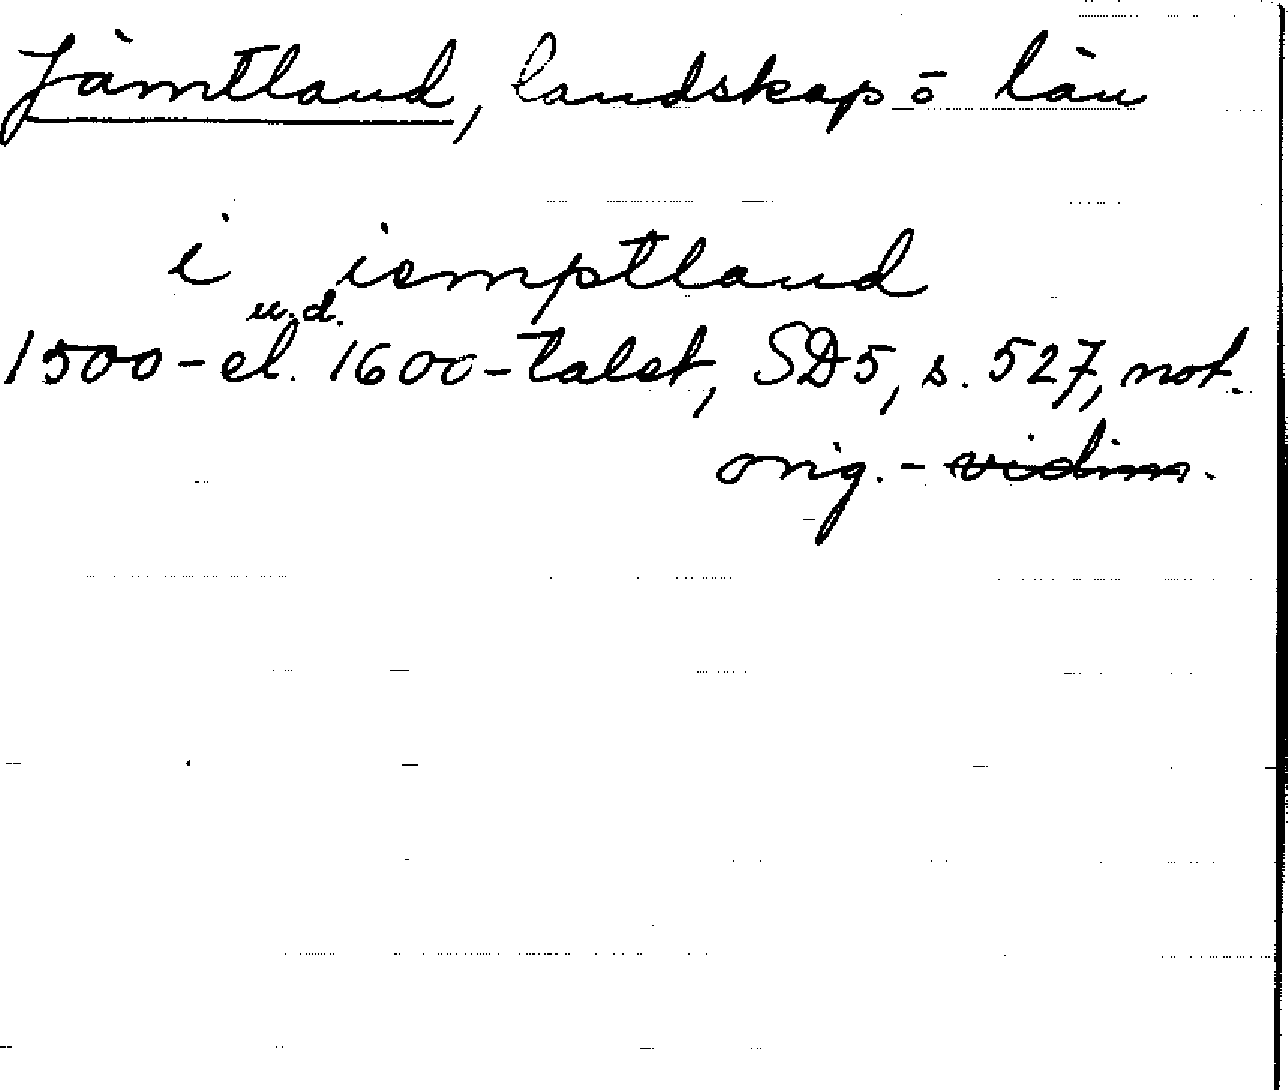 Jämtland, landskap o län
i iemptland
u.d.
1500- el. 1600-talet, SD5, s. 527, not.
orig. - vidim.